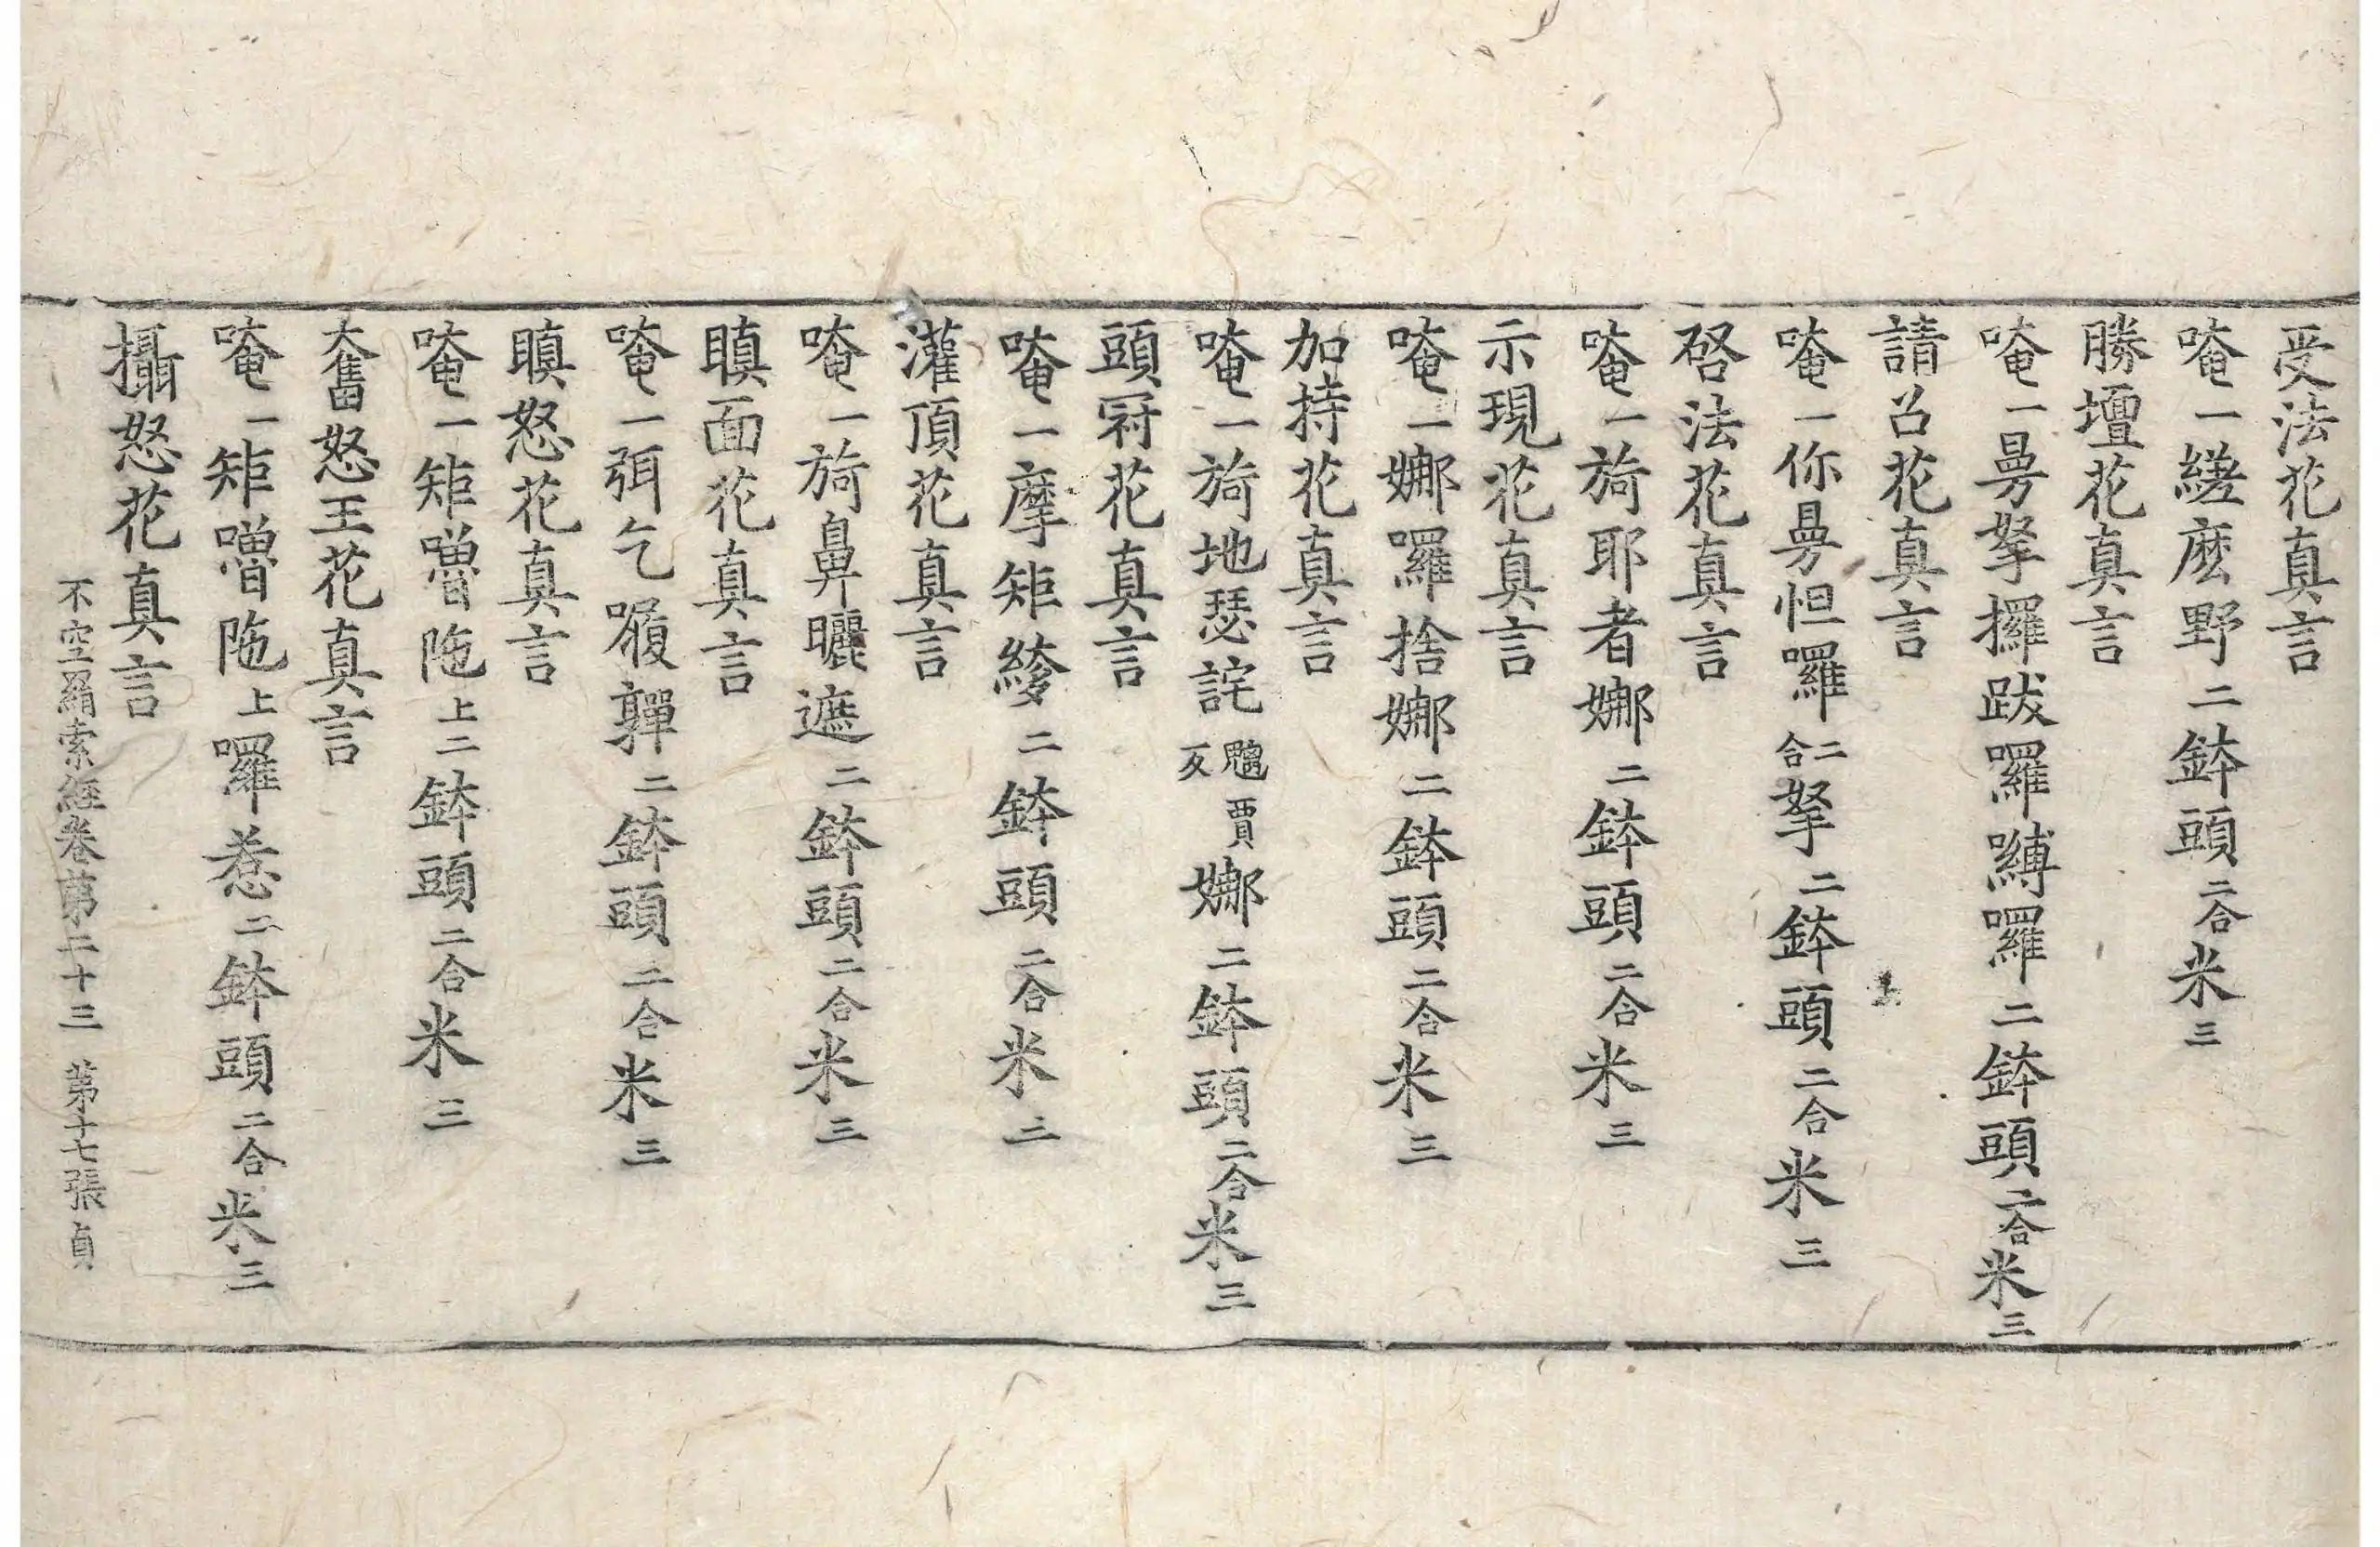 受法花真言
唵一縒麽野二鉢頭二合米三
勝壇花真言
唵一曼拏攞跋囉嚩囉二鉢頭二合米三
請召花真言
唵一你曼怛囉二合拏二鉢頭二合米三
啓法花真言
唵一旖耶者娜二鉢頭二合米三
示現花真言
唵一娜囉捨娜二鉢頭二合米三
加持花真言
唵一旖地瑟詫魑賈反娜二鉢頭二合米三
頭冠花真言
唵一摩矩䌈二鉢頭二合米二
灌頂花真言
唵一旖鼻曬遮二鉢頭二合米三
瞋面花真言
唵一弭乞𡂡嚲二鉢頭二合米三
瞋怒花真言
唵一矩嚕陁上二鉢頭二合米三
大奮怒王花真言
唵一矩嚕陁上囉惹二鉢頭二合米三
攝怒花真言
不空羂索經卷第二十三 第十七張 貞